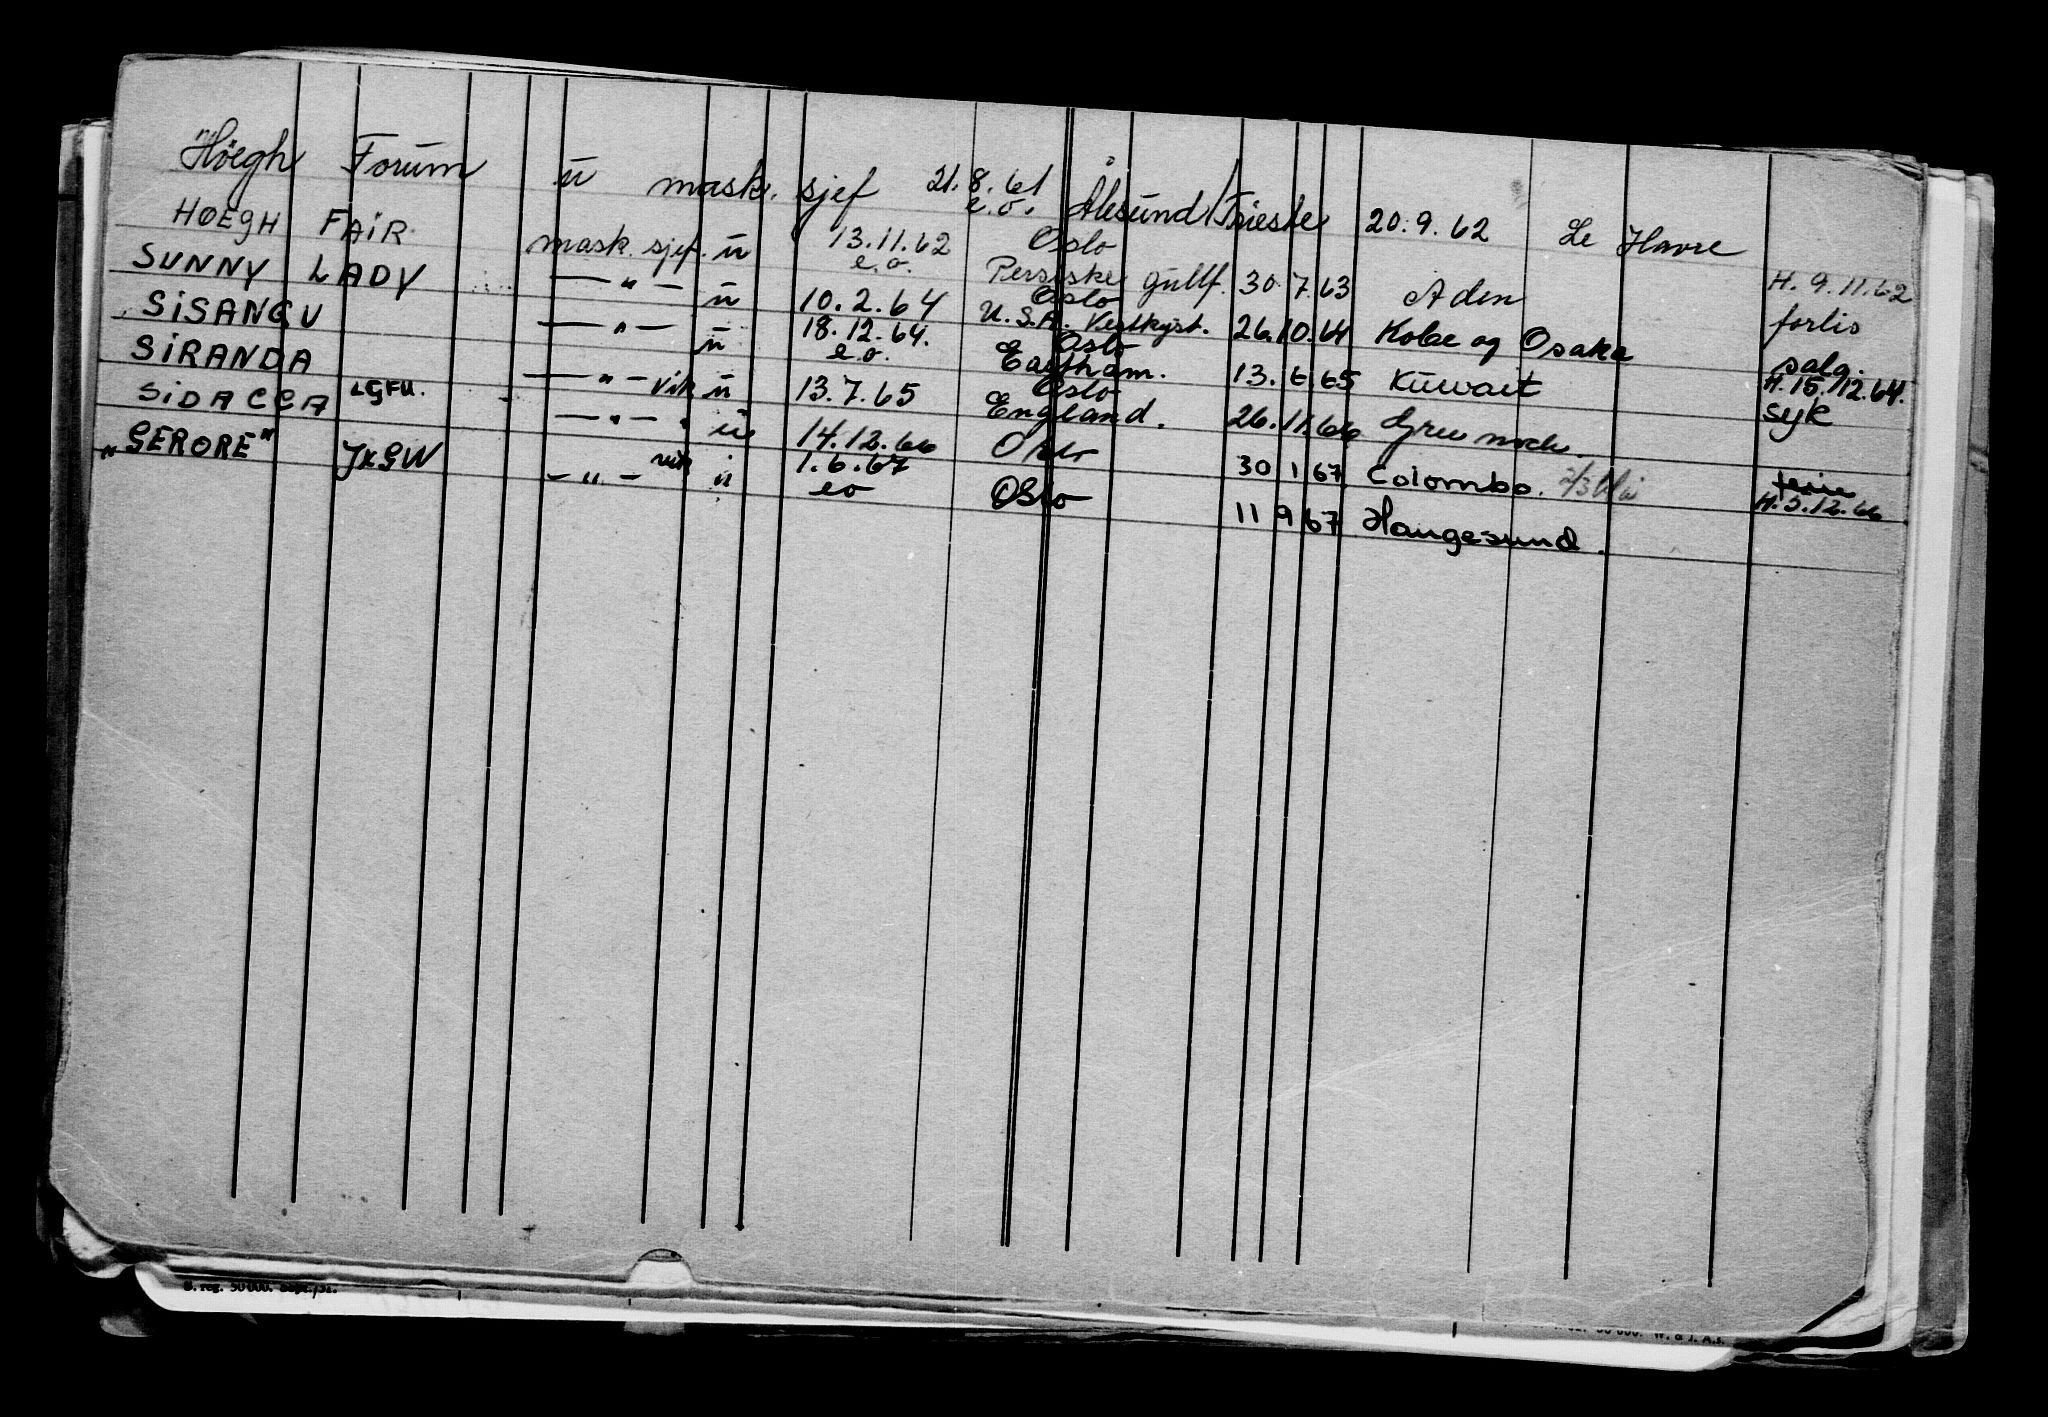 Høegh Forum ū mask. sjef 21.8.61 e.o. Ålesund/Trieste 20.9.62 Le Havre
HØEGH FAIR mask. sjef. ū 13.11.62 e.o. Oslo Persiske gulf. 30.7.63 Aden H. 9.11.62 forlis
SUNNY LADY — " — ū 10.2.64 Oslo U.S.A. Vestkyst. 26.10.64 Kobe og Osaka salg.
SISANGU — " — ū 18.12.64. e.o. Oslo Eastham. 13.6.65 Kuwait H. 15.12.64. syk
SIRANDA — " — vik ū 13.7.65 Oslo England. 26.11.66 Greenock.
SIDACCA LGFU. — " — ū 14.12.66 Oslo 30 1 67 Colombo. H. 3.12.66
"GERORE" JXGW — " — vik ū 1.6.67 eo Oslo 11 9 67 Haugesund.